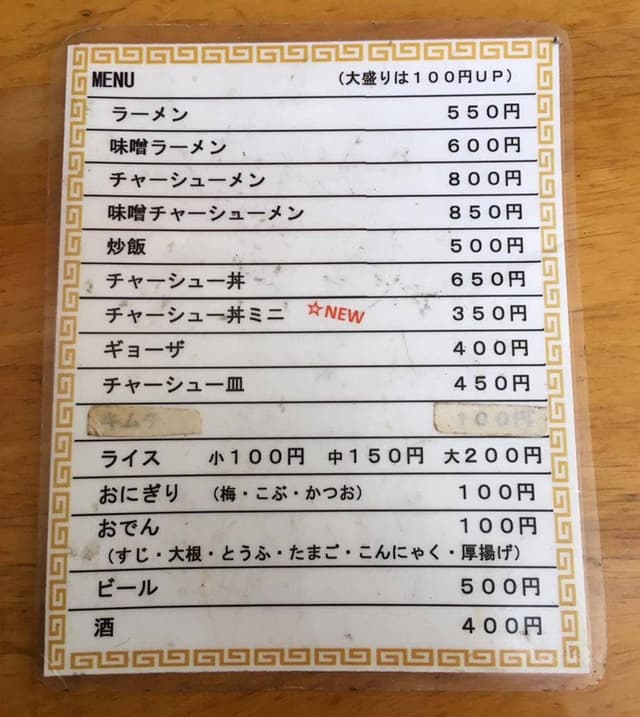 MENU （大盛りは１００円ＵＰ）
ラーメン ５５０円
味噌ラーメン ６００円
チャーシューメン ８００円
味噌チャーシューメン ８５０円
炒飯 ５００円
チャーシュー丼 ６５０円
チャーシュー丼ミニ ☆NEW ３５０円
ギョーザ ４００円
チャーシュー皿 ４５０円
キムチ １００円
ライス 小１００円 中１５０円 大２００円
おにぎり （梅・こぶ・かつお） １００円
おでん １００円
（すじ・大根・とうふ・たまご・こんにゃく・厚揚げ）
ビール ５００円
酒 ４００円